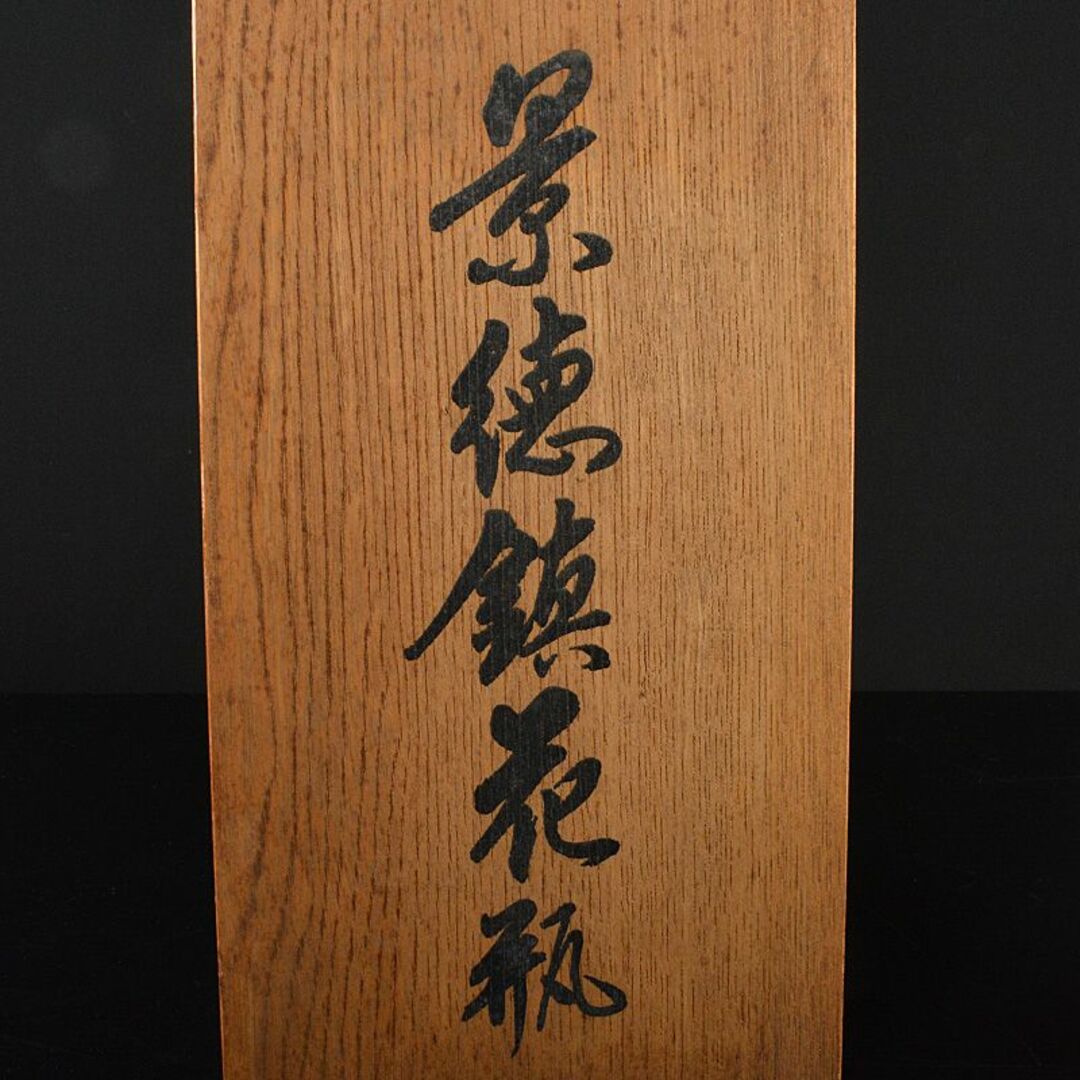 景徳鎮花瓶